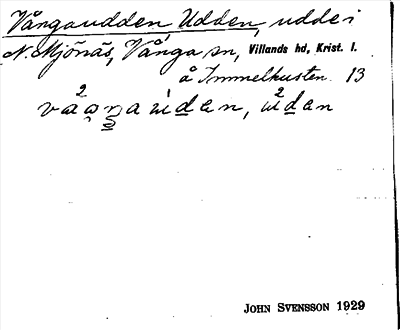 Vångaudden Udden, udde i
N. Mjönäs, Vånga sn, Villands hd, Krist. l.
å Immelkusten. 13
JOHN SVENSSON 1929